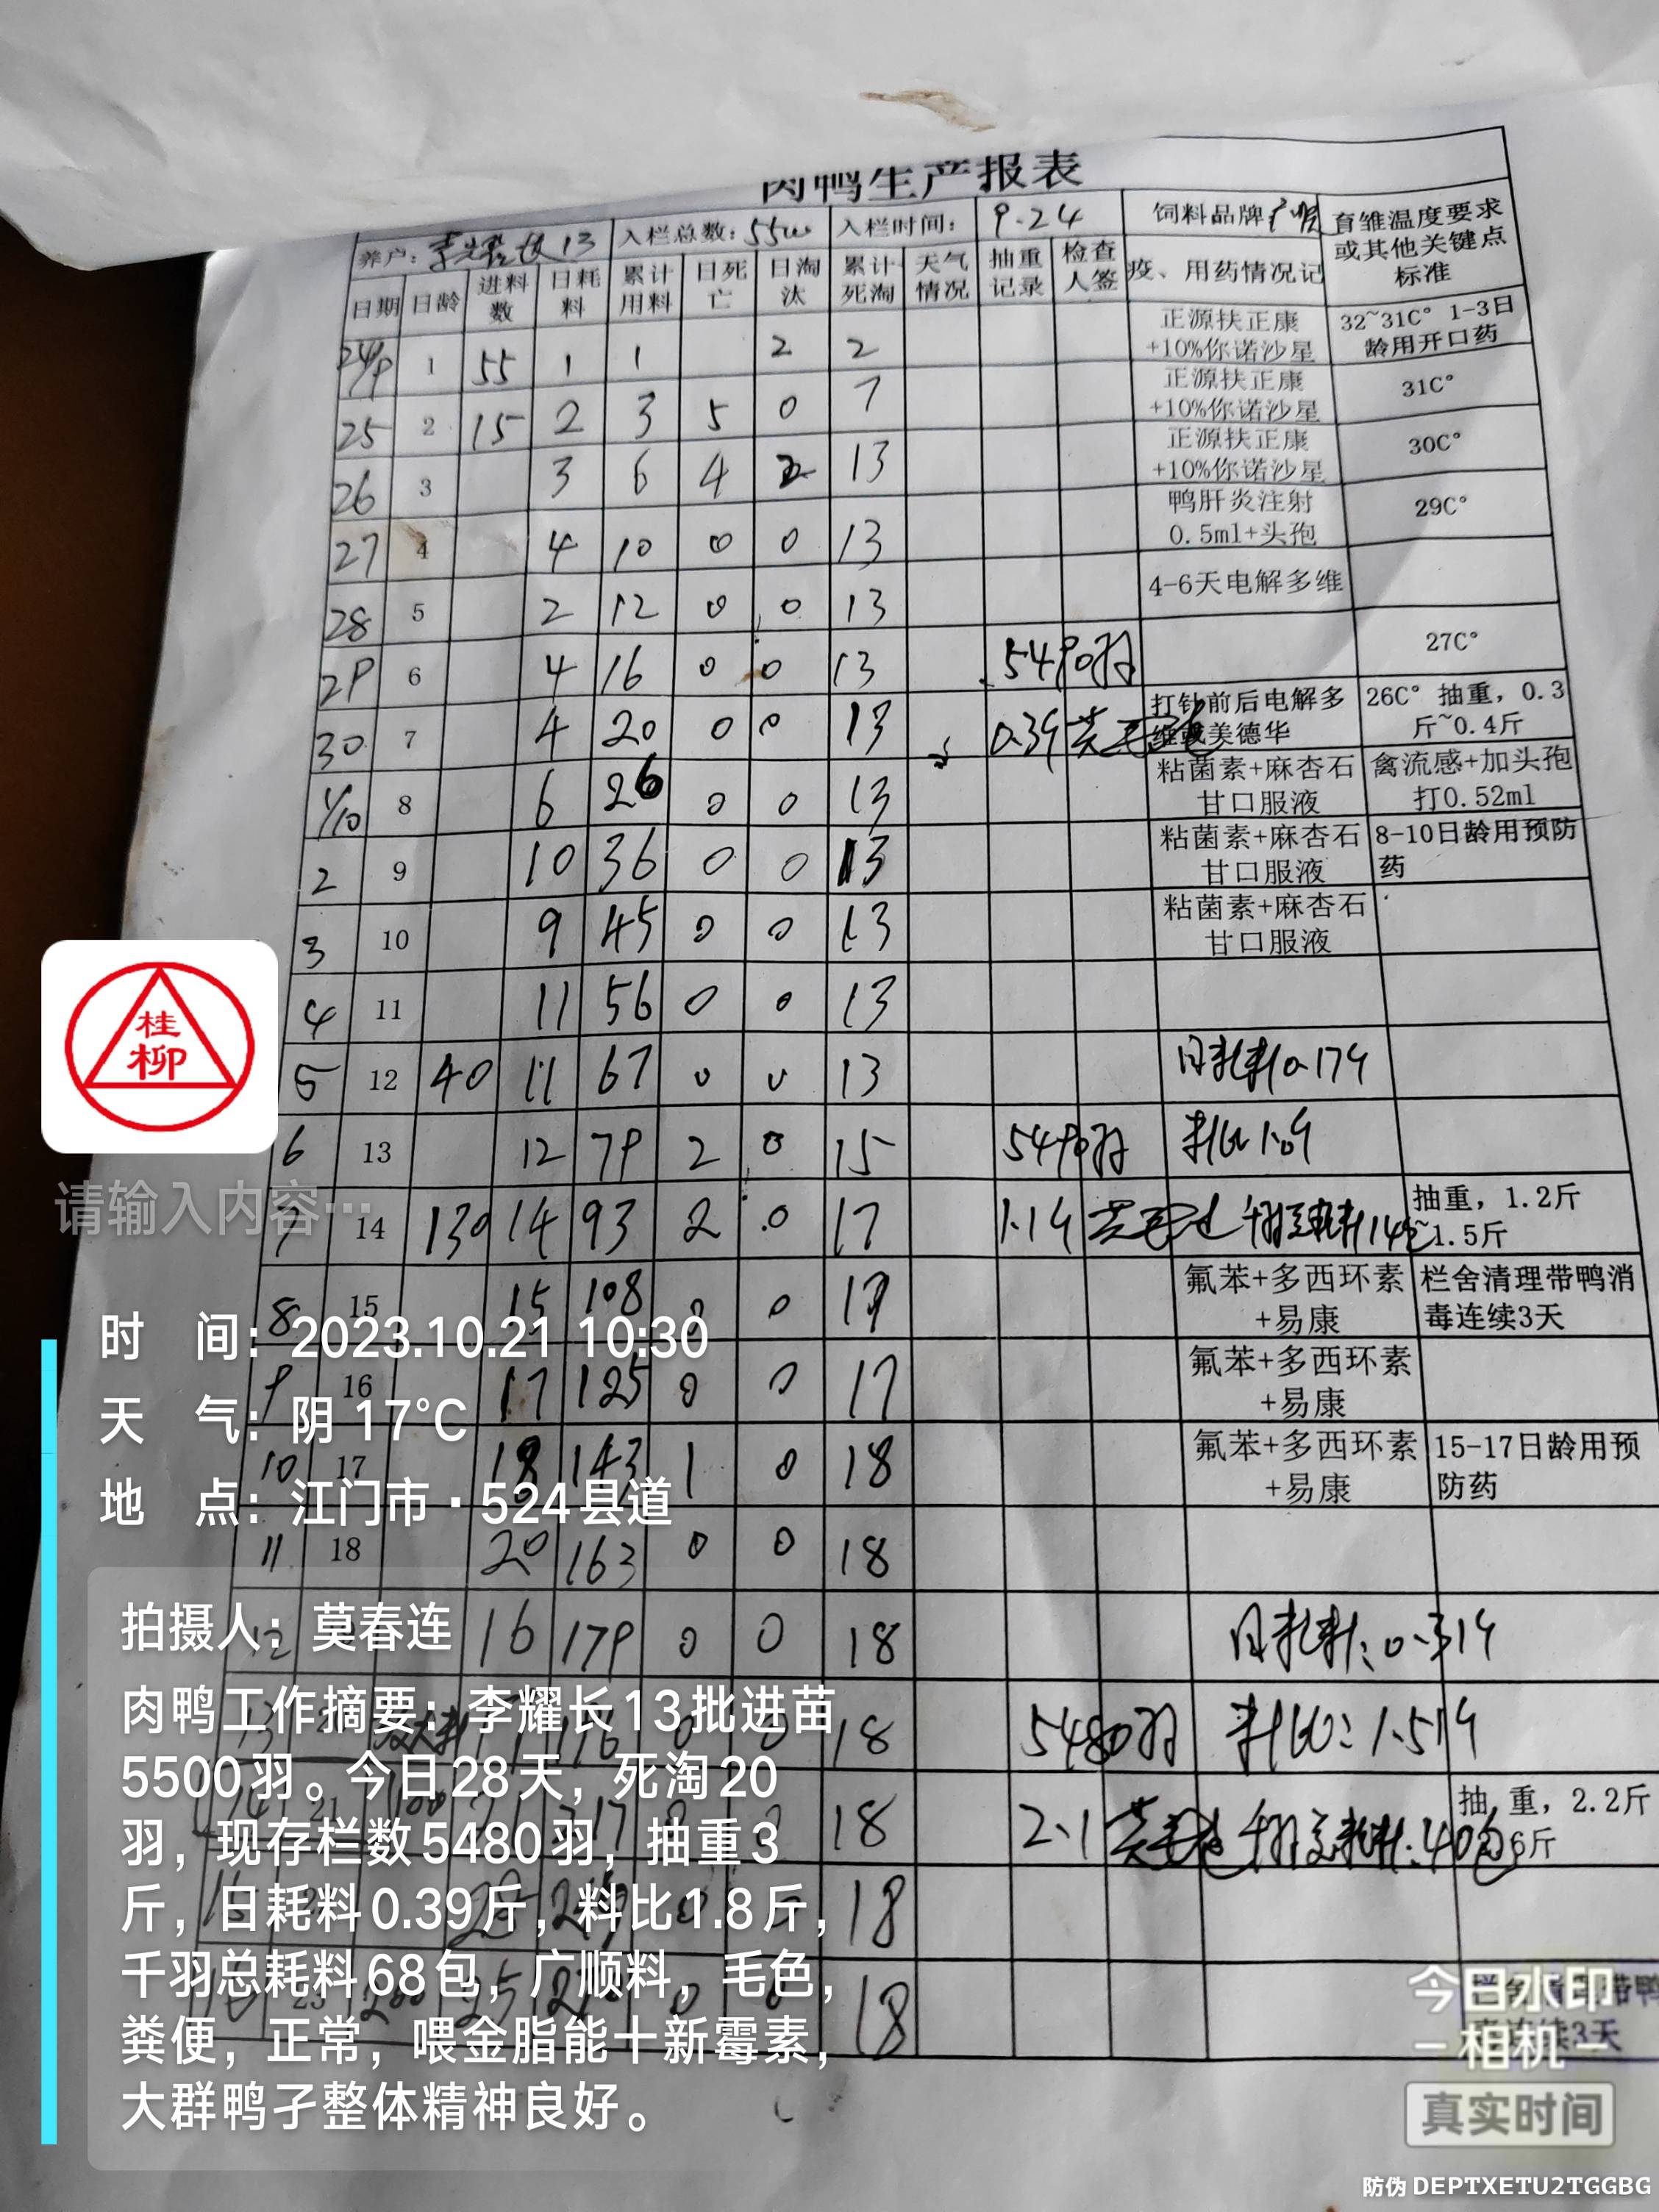 肉鸭生产报表
养户： 13 入栏总数：55 入栏时间： 9.24 饲料品牌 广顺 育雏温度要求或其他关键点标准
日期 日龄 进料数 日耗料 累计用料 日死亡 日淘汰 累计死淘 天气情况 抽重记录 检查人签 疫、用药情况记
24/9 1 55 1 1 2 2 正源扶正康+10%你诺沙星 32~31C° 1-3日龄用开口药
25 2 15 2 3 5 0 7 正源扶正康+10%你诺沙星 31C°
26 3 3 6 4 2 13 正源扶正康+10%你诺沙星 30C°
27 4 4 10 0 0 13 鸭肝炎注射0.5ml+头孢 29C°
28 5 2 12 0 0 13 4-6天电解多维
29 6 4 16 0 0 13 5490羽 27C°
30 7 4 20 0 0 13 0.39 打针前后电解多维或美德华 26C° 抽重，0.3斤~0.4斤
1/10 8 6 26 0 0 13 粘菌素+麻杏石甘口服液 禽流感+加头孢打0.52ml
2 9 10 36 0 0 13 粘菌素+麻杏石甘口服液 8-10日龄用预防药
3 10 9 45 0 0 13 粘菌素+麻杏石甘口服液
4 11 11 56 0 0 13
5 12 40 11 67 0 0 13 日耗料0.17斤
6 13 12 79 2 0 15 5490羽 料比1.6斤
7 14 130 14 93 2 0 17 1.1斤 千羽总耗料14包 抽重，1.2斤~1.5斤
8 15 15 108 0 0 17 氟苯+多西环素+易康 栏舍清理带鸭消毒连续3天
9 16 17 125 0 0 17 氟苯+多西环素+易康
10 17 18 143 1 0 18 氟苯+多西环素+易康 15-17日龄用预防药
11 18 20 163 0 0 18
12 16 179 0 0 18 日耗料：0.31斤
13 196 0 0 18 5480羽 料比：1.51斤
14 21 100 21 217 18 2.1 千羽总耗料：40包 抽 重，2.2斤 6斤
18
23 200 25 0 0 18 连续3天
桂柳
请输入内容…
时 间：2023.10.21 10:30
天 气：阴 17℃
地 点：江门市·524县道
拍摄人：莫春连
肉鸭工作摘要：李耀长13批进苗
5500羽。今日28天，死淘20
羽，现存栏数5480羽，抽重3
斤，日耗料0.39斤，料比1.8斤，
千羽总耗料68包，广顺料，毛色，
粪便，正常，喂金脂能十新霉素，
大群鸭孑整体精神良好。
今日水印
-相机-
真实时间
防伪 DEPTXETU2TGGBG